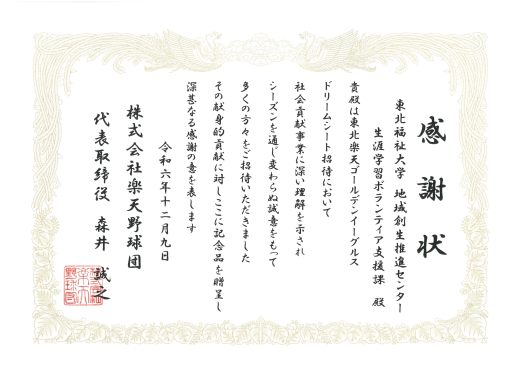 感謝状
東北福祉大学 地域創生推進センター
生涯学習ボランティア支援課 殿
貴殿は東北楽天ゴールデンイーグルス
ドリームシート招待において
社会貢献事業に深い理解を示され
シーズンを通し変わらぬ誠意をもって
多くの方々をご招待いただきました
その献身的貢献に対しここに記念品を贈呈し
深甚なる感謝の意を表します
令和六年十二月九日
株式会社楽天野球団
代表取締役 森井 誠之